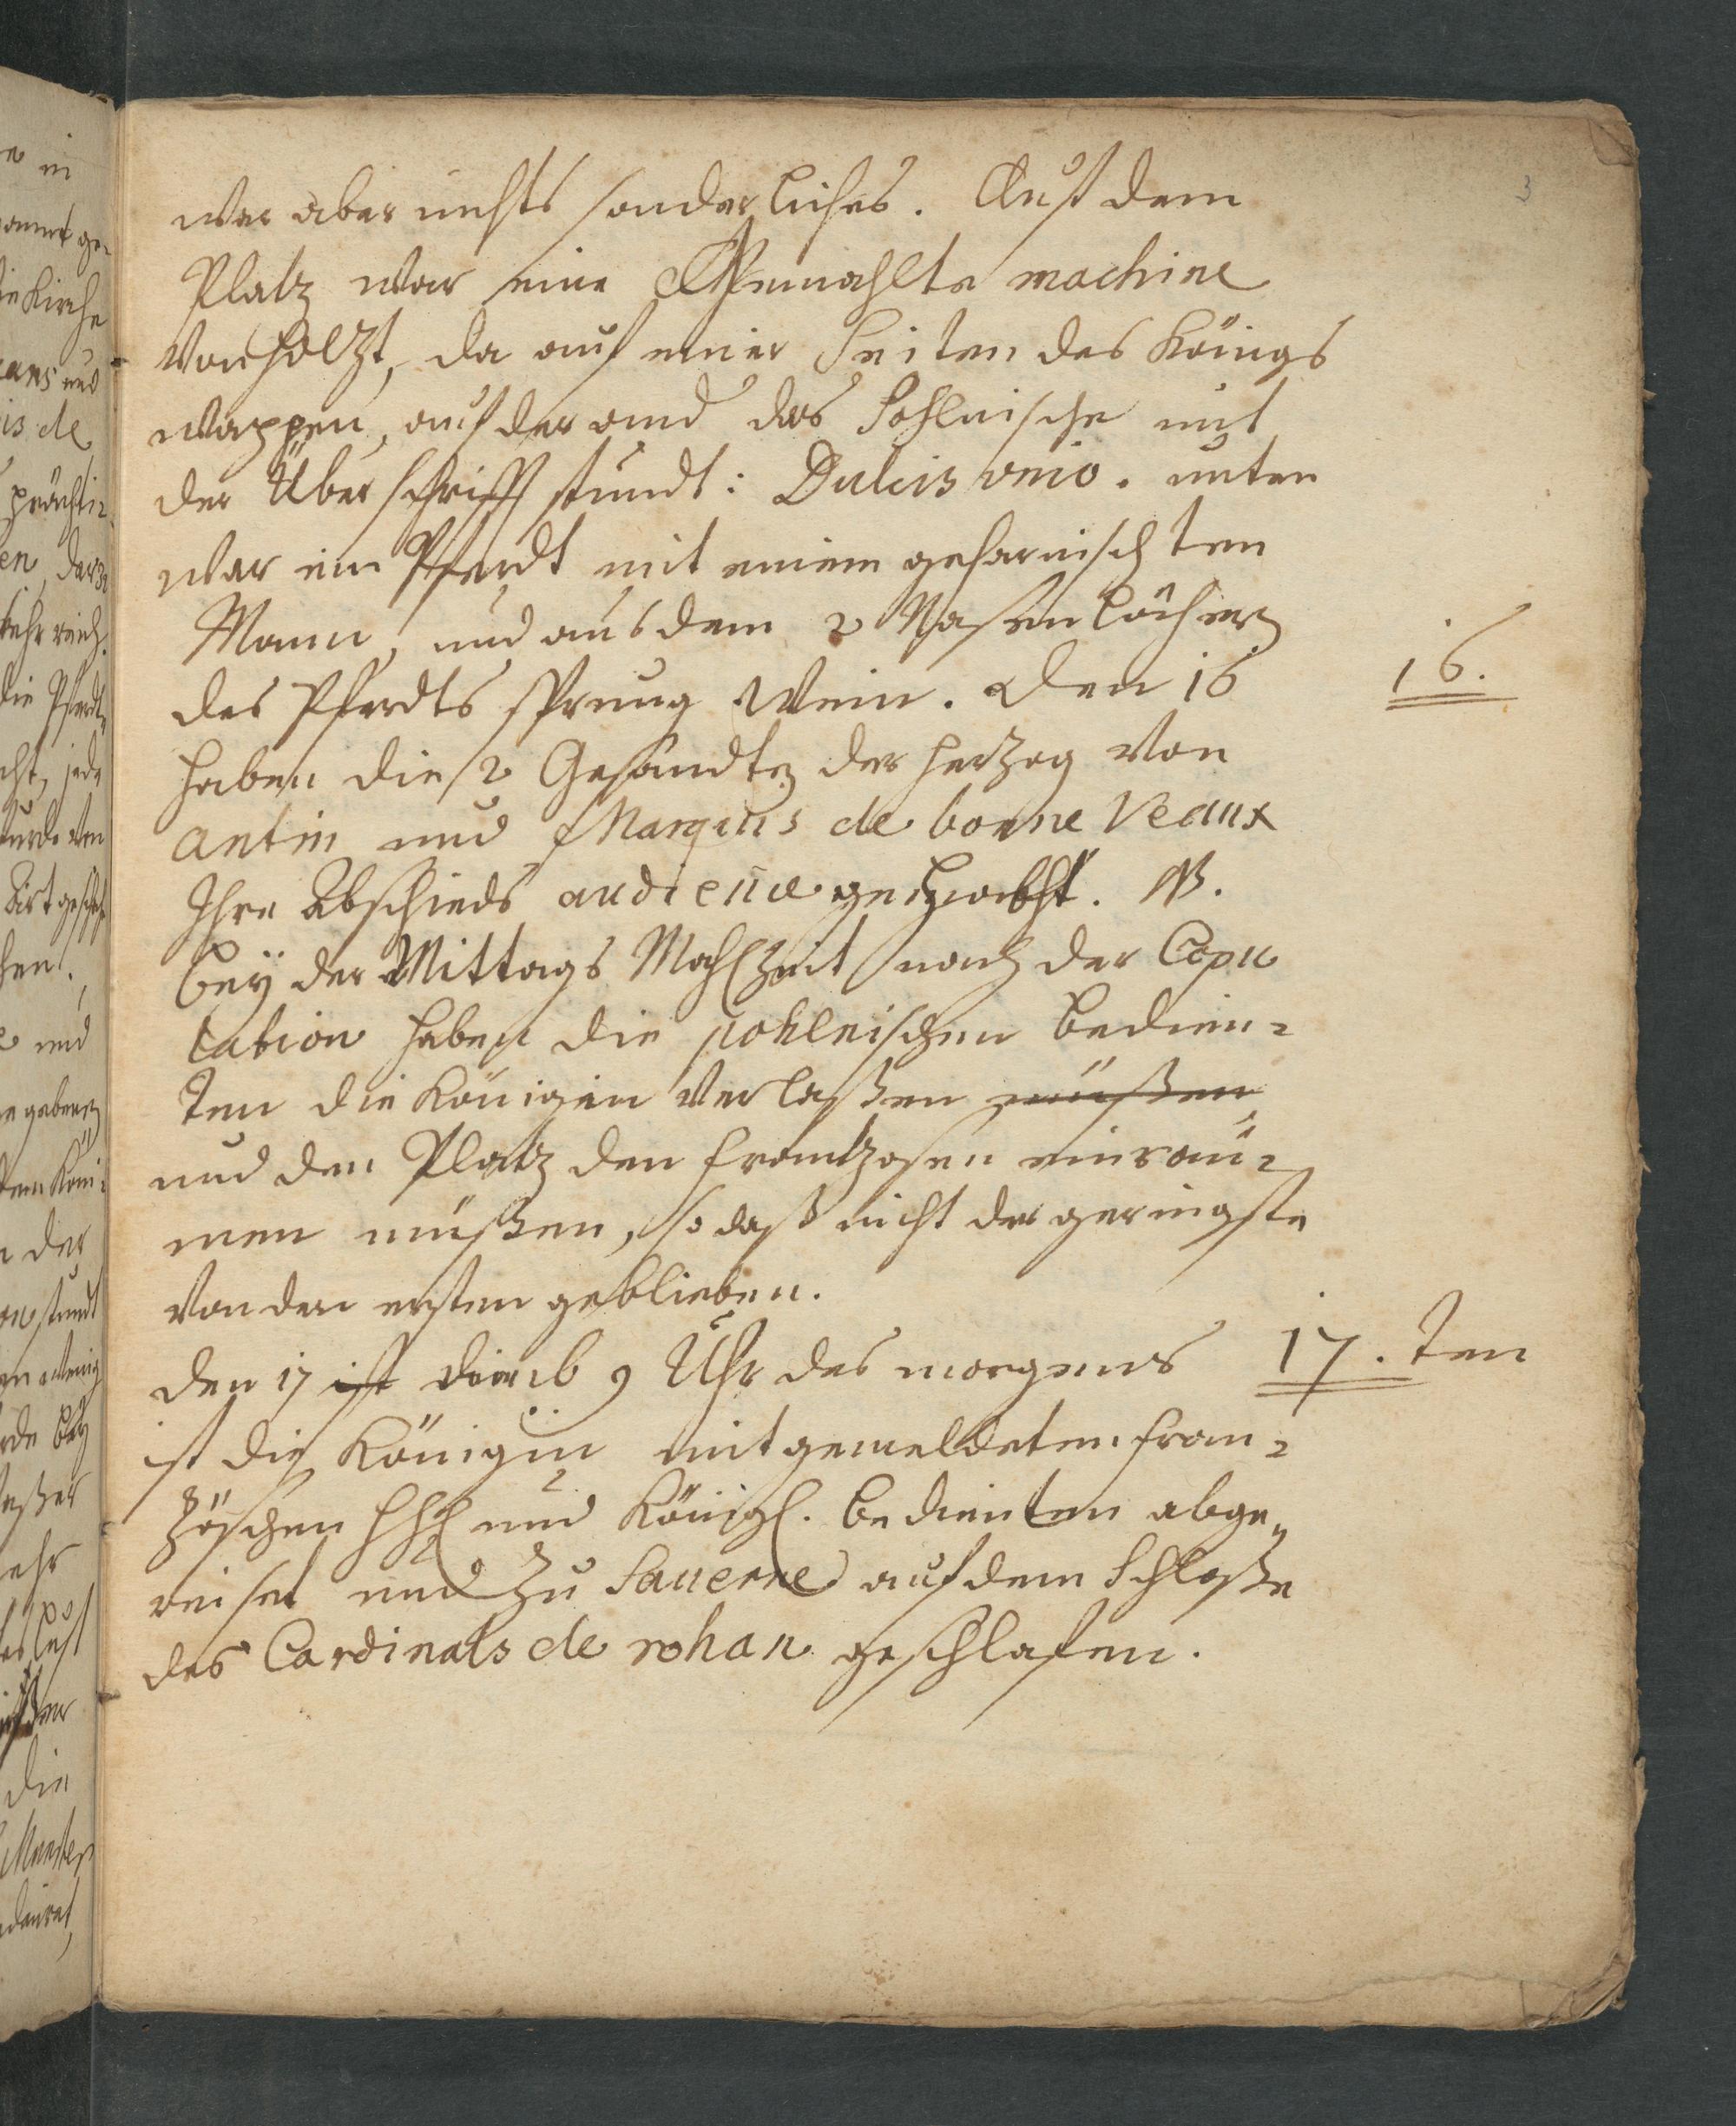 3
war aber nichts sonderliches. Auf dem
Platz war eine Gemahlte machine
Von Holzt, da auf einer Seiten des Königs
wappen, auf der and das Pohlnische mit
der Überschrifft stundt: Dulcis unio. unten
war ein Pferdt mit einem geharnischten
Mann, und aus dem 2 Nasenlöchern
des Pferdts sprung Wein. Den 16
16.
haben die 2 Gesandte der Herzog von
Antin und Marquis de bonne Veaux
Ihre Abschieds audience gehabt. NB.
bey der Mittags Mahlzeit nach der Copu
lation haben die pohlnischen bedien-
ten die Königin verlaßen müßen
und den Platz den frantzosen einräu-
men müßen, so daß nicht der geringste
von den ersten geblieben.
den 17 ist 9 Uhr des morgens
17. ten
ist die Königin mit gemeldeten fran-
zöschen HH und Königl. bedienten abge-
reiset und zu Saverne auf dem Schloße
des Cardinals de rohan geschlafen.